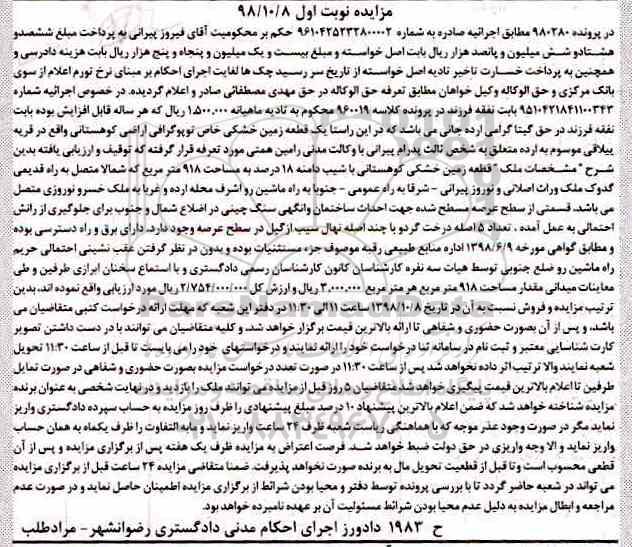 مزایده نوبت اول ۹۸/۱۰/۸
در پرونده ۹۸۰۲۸۰ مطابق اجرائیه صادره به شماره ۹۶۱۰۴۲۵۲۳۲۸۰۰۰۰۲ حکم بر محکومیت آقای فیروز پیرانی به پرداخت مبلغ ششصدو
هشتادو شش میلیون و پانصد هزار ریال بابت اصل خواسته و مبلغ بیست و یک میلیون و پنجاه و پنج هزار ریال بابت هزینه دادرسی و
همچنین به پرداخت خسارت تاخیر تادیه اصل خواسته از تاریخ سر رسید چک ها لغایت اجرای احکام بر مبنای نرخ تورم اعلام از سوی
بانک مرکزی و حق الوکاله وکیل خواهان مطابق تعرفه حق الوکاله در حق مهدی مصطفائی صادر و اعلام گردیده. در خصوص اجرائیه شماره
۹۵۱۰۴۲۱۸۴۱۱۰۰۳۴۳ بابت نفقه فرزند در پرونده کلاسه ۹۶۰۰۱۹ محکوم به تادیه ماهیانه ۱,۵۰۰,۰۰۰ ریال که هر ساله قابل افزایش بوده بابت
نفقه فرزند در حق گیتا گرامی ارده جانی می باشد که در این راستا یک قطعه زمین خشکی خاص توپوگرافی اراضی کوهستانی واقع در قریه
ییلاقی موسوم به ارده متعلق به شخص ثالث پدرام پیرانی با وکالت مدنی رامین همتی مورد تعرفه قرار گرفته که توقیف و ارزیابی یافته بدین
شرح " مشخصات ملک " قطعه زمین خشکی کوهستانی با شیب دامنه ۱۸ درصد به مساحت ۹۱۸ متر مربع که شمالا متصل به راه قدیمی
گدوک ملک وراث اصلانی و نوروز پیرانی - شرقا به راه عمومی - جنوبا به راه ماشین رو اشرف محله ارده و غربا به ملک خسرو نوروزی متصل
می باشد. قسمتی از سطح عرصه مسطح شده جهت احداث ساختمان وانگهی سنگ چینی در اضلاع شمال و جنوب برای جلوگیری از رانش
احتمالی به عمل آمده . تعداد ۵ اصله درخت گردو با چند اصله نهال سیب ازگیل در سطح عرصه وجود دارد. دارای برق و راه دسترسی بوده
و مطابق گواهی مورخه ۱۳۹۸/۶/۹ اداره منابع طبیعی رقبه موصوف جزء مستثنیات بوده و بدون در نظر گرفتن عقب نشینی احتمالی حریم
راه ماشین رو ضلع جنوبی توسط هیات سه نفره کارشناسان کانون کارشناسان رسمی دادگستری و با استماع سخنان ابرازی طرفین و طی
معاینات میدانی مقدار مساحت ۹۱۸ متر مربع هر متر مربع ۳,۰۰۰,۰۰۰ ریال و ارزش کل ۲/۷۵۴/۰۰۰/۰۰۰ ریال مورد ارزیابی واقع نموده اند. بدین
ترتیب مزایده و فروش نسبت به آن در تاریخ ۱۳۹۸/۱۰/۸ ساعت ۱۱ الی ۱۱:۳۰ در دفتر این شعبه که مهلت ارائه درخواست کتبی متقاضیان می
باشد، و پس از آن بصورت حضوری و شفاهی تا ارائه بالاترین قیمت برگزار خواهد شد. و کلیه متقاضیان می توانند با در دست داشتن تصویر
کارت شناسایی معتبر و ثبت نام در سامانه ثنا درخواست خود را ارائه نمایند و درخواستهای خود را می بایست تا قبل از ساعت ۱۱:۳۰ تحویل
شعبه نمایند والا ترتیب اثر داده نخواهد شد پس از ساعت ۱۱:۳۰ در صورت تعدد درخواست مزایده بصورت حضوری و شفاهی در صورت تمایل
طرفین تا اعلام بالاترین قیمت پیگیری خواهد شد متقاضیان ۵ روز قبل از مزایده می توانند ملک را بازدید و در نهایت شخصی به عنوان برنده
مزایده شناخته خواهد شد که ضمن اعلام بالاترین پیشنهاد ۱۰ درصد مبلغ پیشنهادی را ظرف روز مزایده به حساب سپرده دادگستری واریز
نماید مگر در صورت وجود عذر موجه که با هماهنگی ریاست شعبه ظرف ۲۴ ساعت واریز نماید و مابه التفاوت را ظرف یکماه به همان حساب
واریز نماید و الا وجه واریزی در حق دولت ضبط خواهد شد. فرصت اعتراض به مزایده ظرف یک هفته پس از برگزاری مزایده و پس از آن
قطعی محسوب است و تا قبل از قطعیت تحویل مال به برنده صورت نخواهد پذیرفت. ضمنا متقاضی مزایده ۲۴ ساعت قبل از برگزاری مزایده
می تواند در شعبه حاضر گردد تا با بررسی پرونده توسط دفتر و محیا بودن شرائط از برگزاری مزایده اطمینان حاصل نماید و در صورت عدم
مراجعه و ابطال مزایده به دلیل عدم محیا بودن شرائط مسئولیت آن بر عهده نامبرده خواهد بود.
ح ۱۹۸۳ دادورز اجرای احکام مدنی دادگستری رضوانشهر- مرادطلب